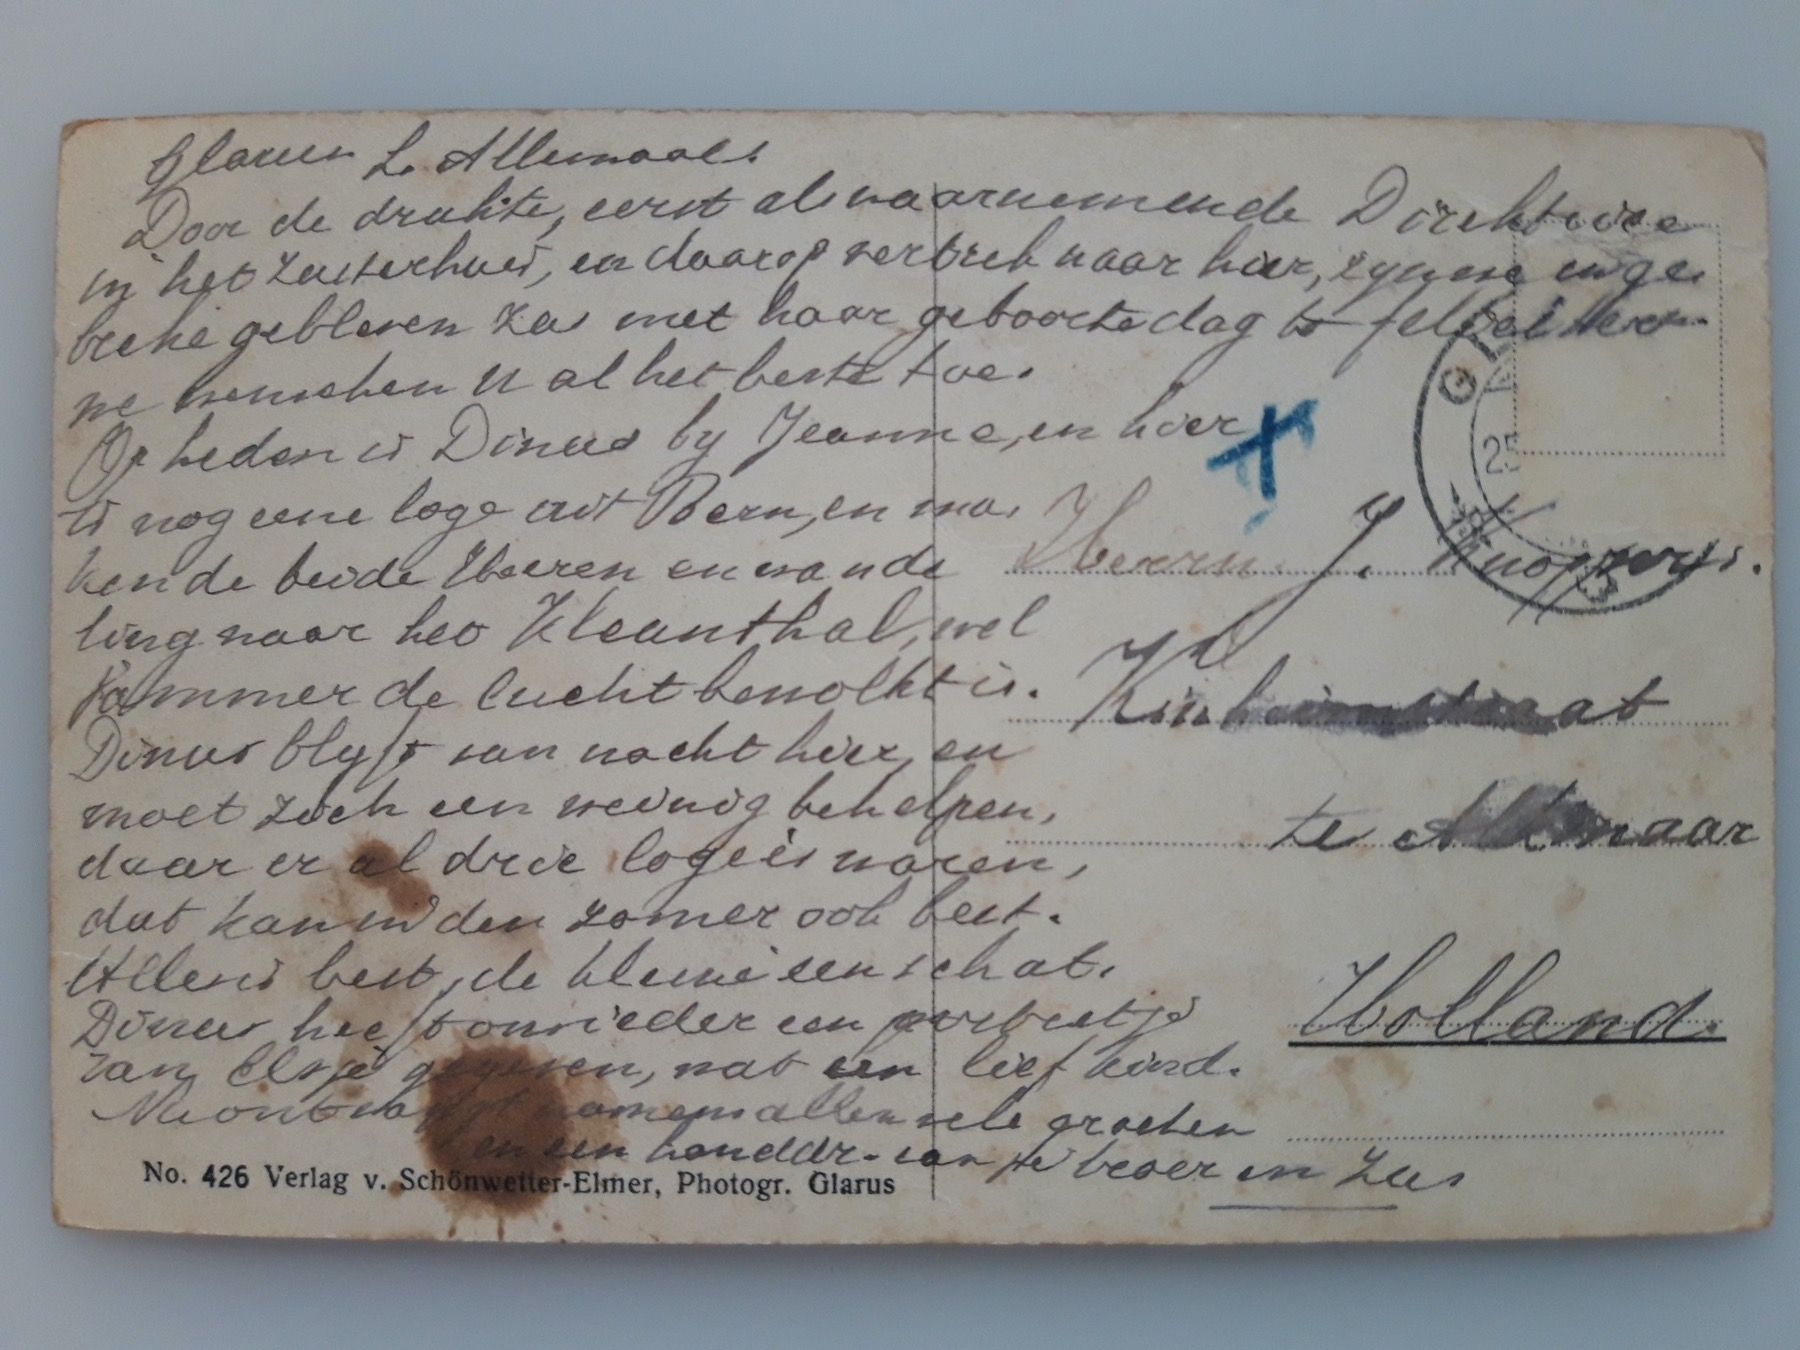 Glarus L. Allemaal.
Door de drukte, eerst als waarnemende Direktrice
in het zusterhuis, en daarop vertrek naar hier, zijn we in ge-
breke gebleven Zus met haar geboortedag te felici
we wenschen U al het beste toe.
Op heden is Dinus by Jeanne, en hier
is nog eene loge uit Bern, en ma-
ken de beide Heeren en wande
ling naar het Kleanthal, wel
jammer de lucht bewolkt is.
Dinus blyft van nacht hier, en
moet zich een weinig behelpen,
daar er al drie logeés waren,
dat kan in den zomer ook best.
Allens best, de kleine een schat.
Dinus heeft ons ieder een portretje
van Elsje gegeven, wat een lief kind.
Nu ontvangt namens allen vele groeten
en een handdr. van je broer en Zus
Herrn J. Knoppers.
Kinheimstraat
te Alkmaar
Holland.
G
25
No. 426 Verlag v. Schönwetter-Elmer, Photogr. Glarus